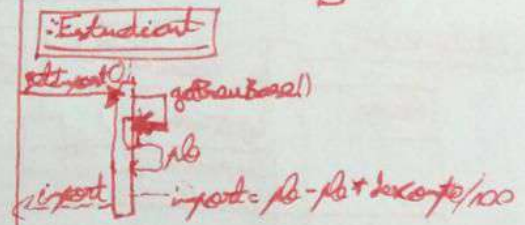 :Estudiant
getImport()
getPreuBase()
pb
import
import = pb - pb * descompte/100